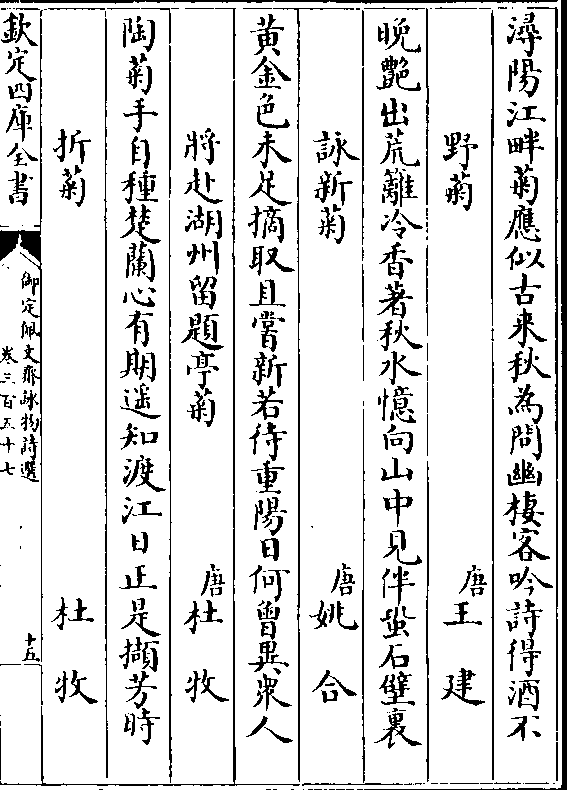 潯陽江畔菊應似古来秋為問幽棲客吟詩得酒不
野菊 唐王建
晚艷出荒籬冷香著秋水憶向山中見伴蛩石壁裏
詠新菊 唐姚合
黄金色未足摘取且嘗新若待重陽日何曽異衆人
將赴湖州留題亭菊 唐杜牧
陶菊手自種楚蘭心有期遥知渡江日正是擷芳時
折菊 杜牧
欽定四庫全書
御定佩文齋詠物詩選
卷三百五十七
十五